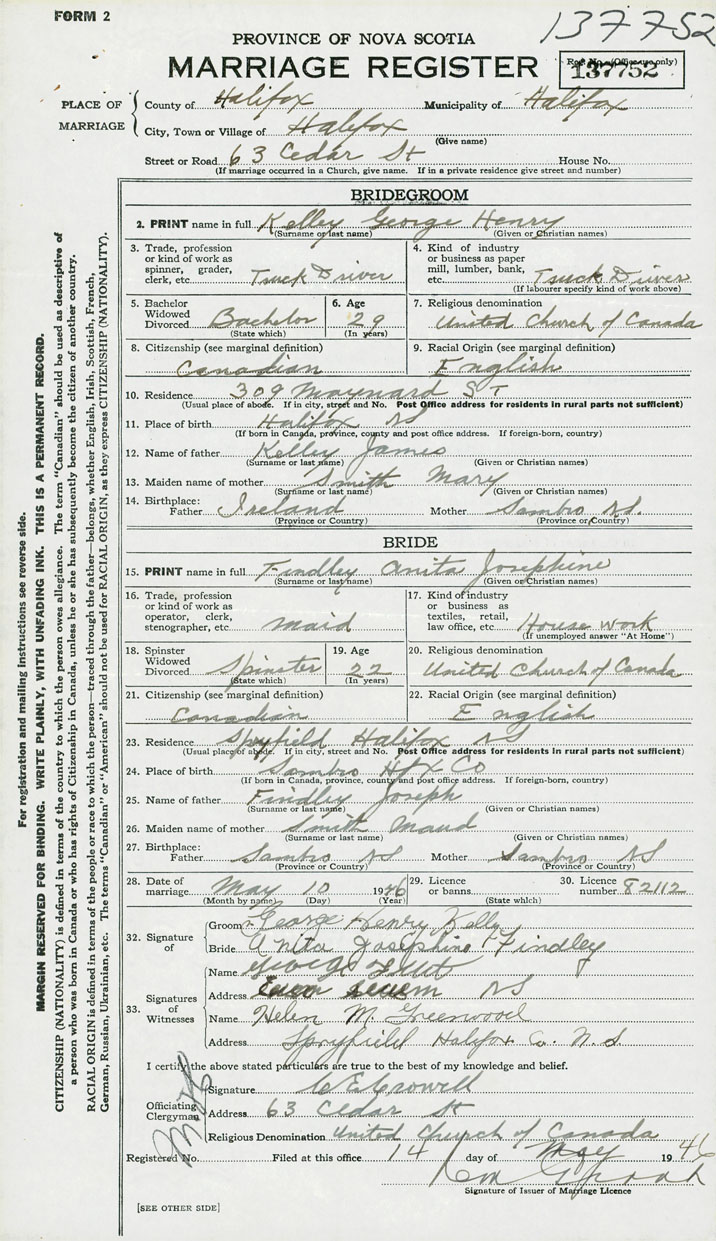 FORM 2
137752
PROVINCE OF NOVA SCOTIA
MARRIAGE REGISTER
Reg. No. (Office use only)
137752
PLACE OF MARRIAGE
County of Halifax Municipality of Halifax
City, Town or Village of Halifax
(Give name)
Street or Road 63 Cedar St House No.
(If marriage occurred in a Church, give name. If in a private residence give street and number)
BRIDEGROOM
2. PRINT name in full Kelley George Henry
(Surname or last name) (Given or Christian names)
3. Trade, profession or kind of work as spinner, grader, clerk, etc. Truck Driver
4. Kind of industry or business as paper mill, lumber, bank, etc. Truck Driver
(If labourer specify kind of work above)
5. Bachelor Widowed Divorced Bachelor
(State which)
6. Age 29
(In years)
7. Religious denomination
United Church of Canada
8. Citizenship (see marginal definition)
Canadian
9. Racial Origin (see marginal definition)
English
10. Residence 309 Maynard ST
(Usual place of abode. If in city, street and No. Post Office address for residents in rural parts not sufficient)
11. Place of birth Halifax NS
(If born in Canada, province, county and post office address. If foreign-born, country)
12. Name of father Kelley James
(Surname or last name) (Given or Christian names)
13. Maiden name of mother Smith Mary
(Surname or last name) (Given or Christian names)
14. Birthplace:
Father Ireland Mother Sambro N.S.
(Province or Country) (Province or Country)
BRIDE
15. PRINT name in full Findley Anita Josephine
(Surname or last name) (Given or Christian names)
16. Trade, profession or kind of work as operator, clerk, stenographer, etc. maid
17. Kind of industry or business as textiles, retail, law office, etc. House work
(If unemployed answer "At Home")
18. Spinster Widowed Divorced Spinster
(State which)
19. Age 22
(In years)
20. Religious denomination
United Church of Canada
21. Citizenship (see marginal definition)
Canadian
22. Racial Origin (see marginal definition)
English
23. Residence Spryfield Halifax NS
(Usual place of abode. If in city, street and No. Post Office address for residents in rural parts not sufficient)
24. Place of birth Sambro Hfx Co
(If born in Canada, province, county and post office address. If foreign-born, country)
25. Name of father Findley Joseph
(Surname or last name) (Given or Christian names)
26. Maiden name of mother Smith Maud
(Surname or last name) (Given or Christian names)
27. Birthplace:
Father Sambro NS Mother Sambro NS
(Province or Country) (Province or Country)
28. Date of marriage May 10 1946
(Month by name) (Day) (Year)
29. Licence or banns
(State which)
30. Licence number 82112
32. Signature of
Groom George Henry Kelly
Bride Anita Josephine Findley
33. Signatures of Witnesses
Name George
Address NS
Name Helen M. Greenwood
Address Spryfield Halifax Co. N.S.
I certify the above stated particulars are true to the best of my knowledge and belief.
Officiating Clergyman
Signature C E Crowell
Address 63 Cedar St
Religious Denomination United Church of Canada
Registered No. Filed at this office 14 day of May 1946
Signature of Issuer of Marriage Licence
[SEE OTHER SIDE]
For registration and mailing instructions see reverse side.
MARGIN RESERVED FOR BINDING. WRITE PLAINLY, WITH UNFADING INK. THIS IS A PERMANENT RECORD.
CITIZENSHIP (NATIONALITY) is defined in terms of the country to which the person owes allegiance. The term "Canadian" should be used as descriptive of
a person who was born in Canada or who has rights of Citizenship in Canada, unless he or she has subsequently become the citizen of another country.
RACIAL ORIGIN is defined in terms of the people or race to which the person—traced through the father—belongs, whether English, Irish, Scottish, French,
German, Russian, Ukrainian, etc. The terms "Canadian" or "American" should not be used for RACIAL ORIGIN, as they express CITIZENSHIP (NATIONALITY).